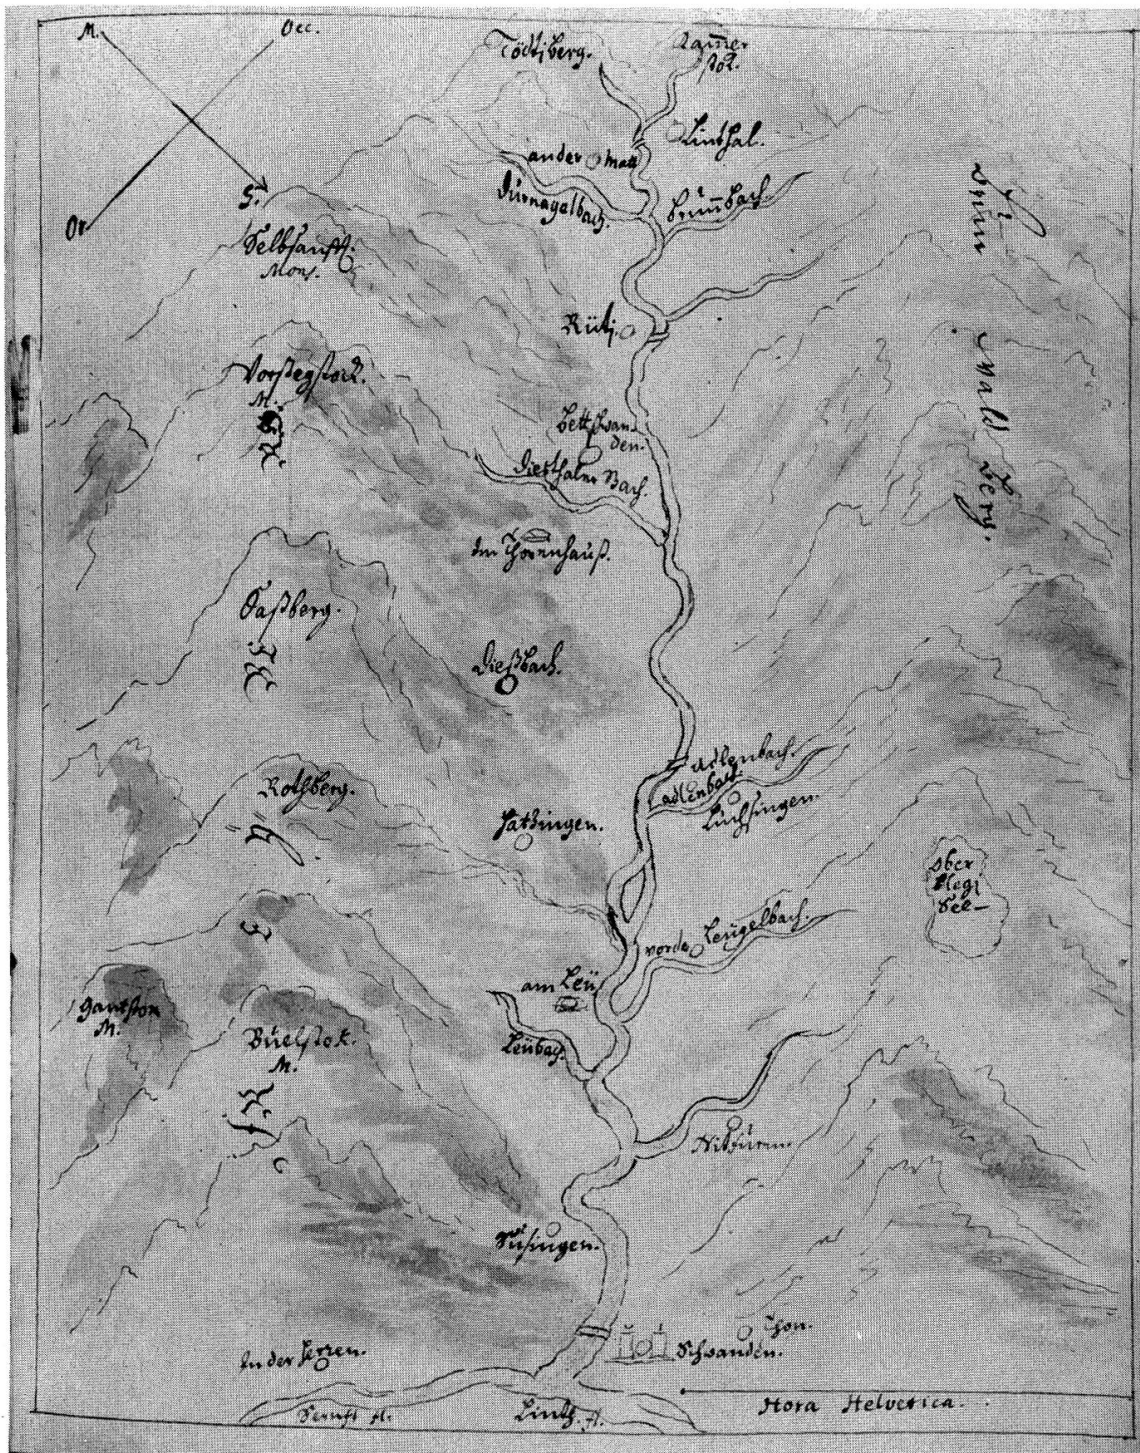 M.
Occ.
S.
Or.
Tödtj berg.
Kam̅er
stok.
Linthal.
ander matt
Durnagelbach.
brum̅bach.
Selbsanfft.
Mons.
Rütj.
brun
wald
berg.
Vorstegstock.
M.
Bettschwan-
den.
Diesthaler Bach.
Im Thorenhauß.
Saßberg.
Dießbach.
Adlenbach.
adlenbach.
Luchsingen.
Rothberg.
Hatzingen.
Ober
Bleg
See
vorder Leugelbach.
am Leü
Leübach.
M.
Büelstok.
M.
Nitfuren.
Süsingen.
Thon.
Schwanden.
In der herren.
Sernft fl.
Linth. fl.
Hora Helvetica.